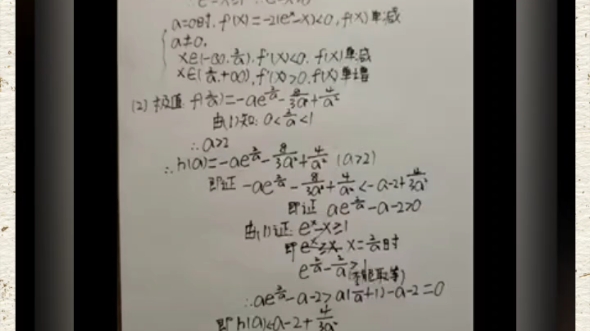 a=0时, f'(x)=-2(eˣ-x)<0, f(x)单减
a≠0,
x∈(-∞, 2/a), f'(x)<0, f(x)单减
x∈(2/a, +∞), f'(x)>0, f(x)单增
(2) 极值: f(2/a)=-ae^(2/a)-8/3a²+4/a²
由(1)知: 0<2/a<1
∴a>2
∴h(a)=-ae^(2/a)-8/3a²+4/a² (a>2)
即证 -ae^(2/a)-8/3a²+4/a²<-a-2+4/3a²
即证 ae^(2/a)-a-2>0
由(1)证: eˣ-x≥1
即 x=2/a时
e^(2/a)-2/a>1(不能取等)
∴ae^(2/a)-a-2>a(2/a+1)-a-2=0
即h(a)<-a-2+4/3a²